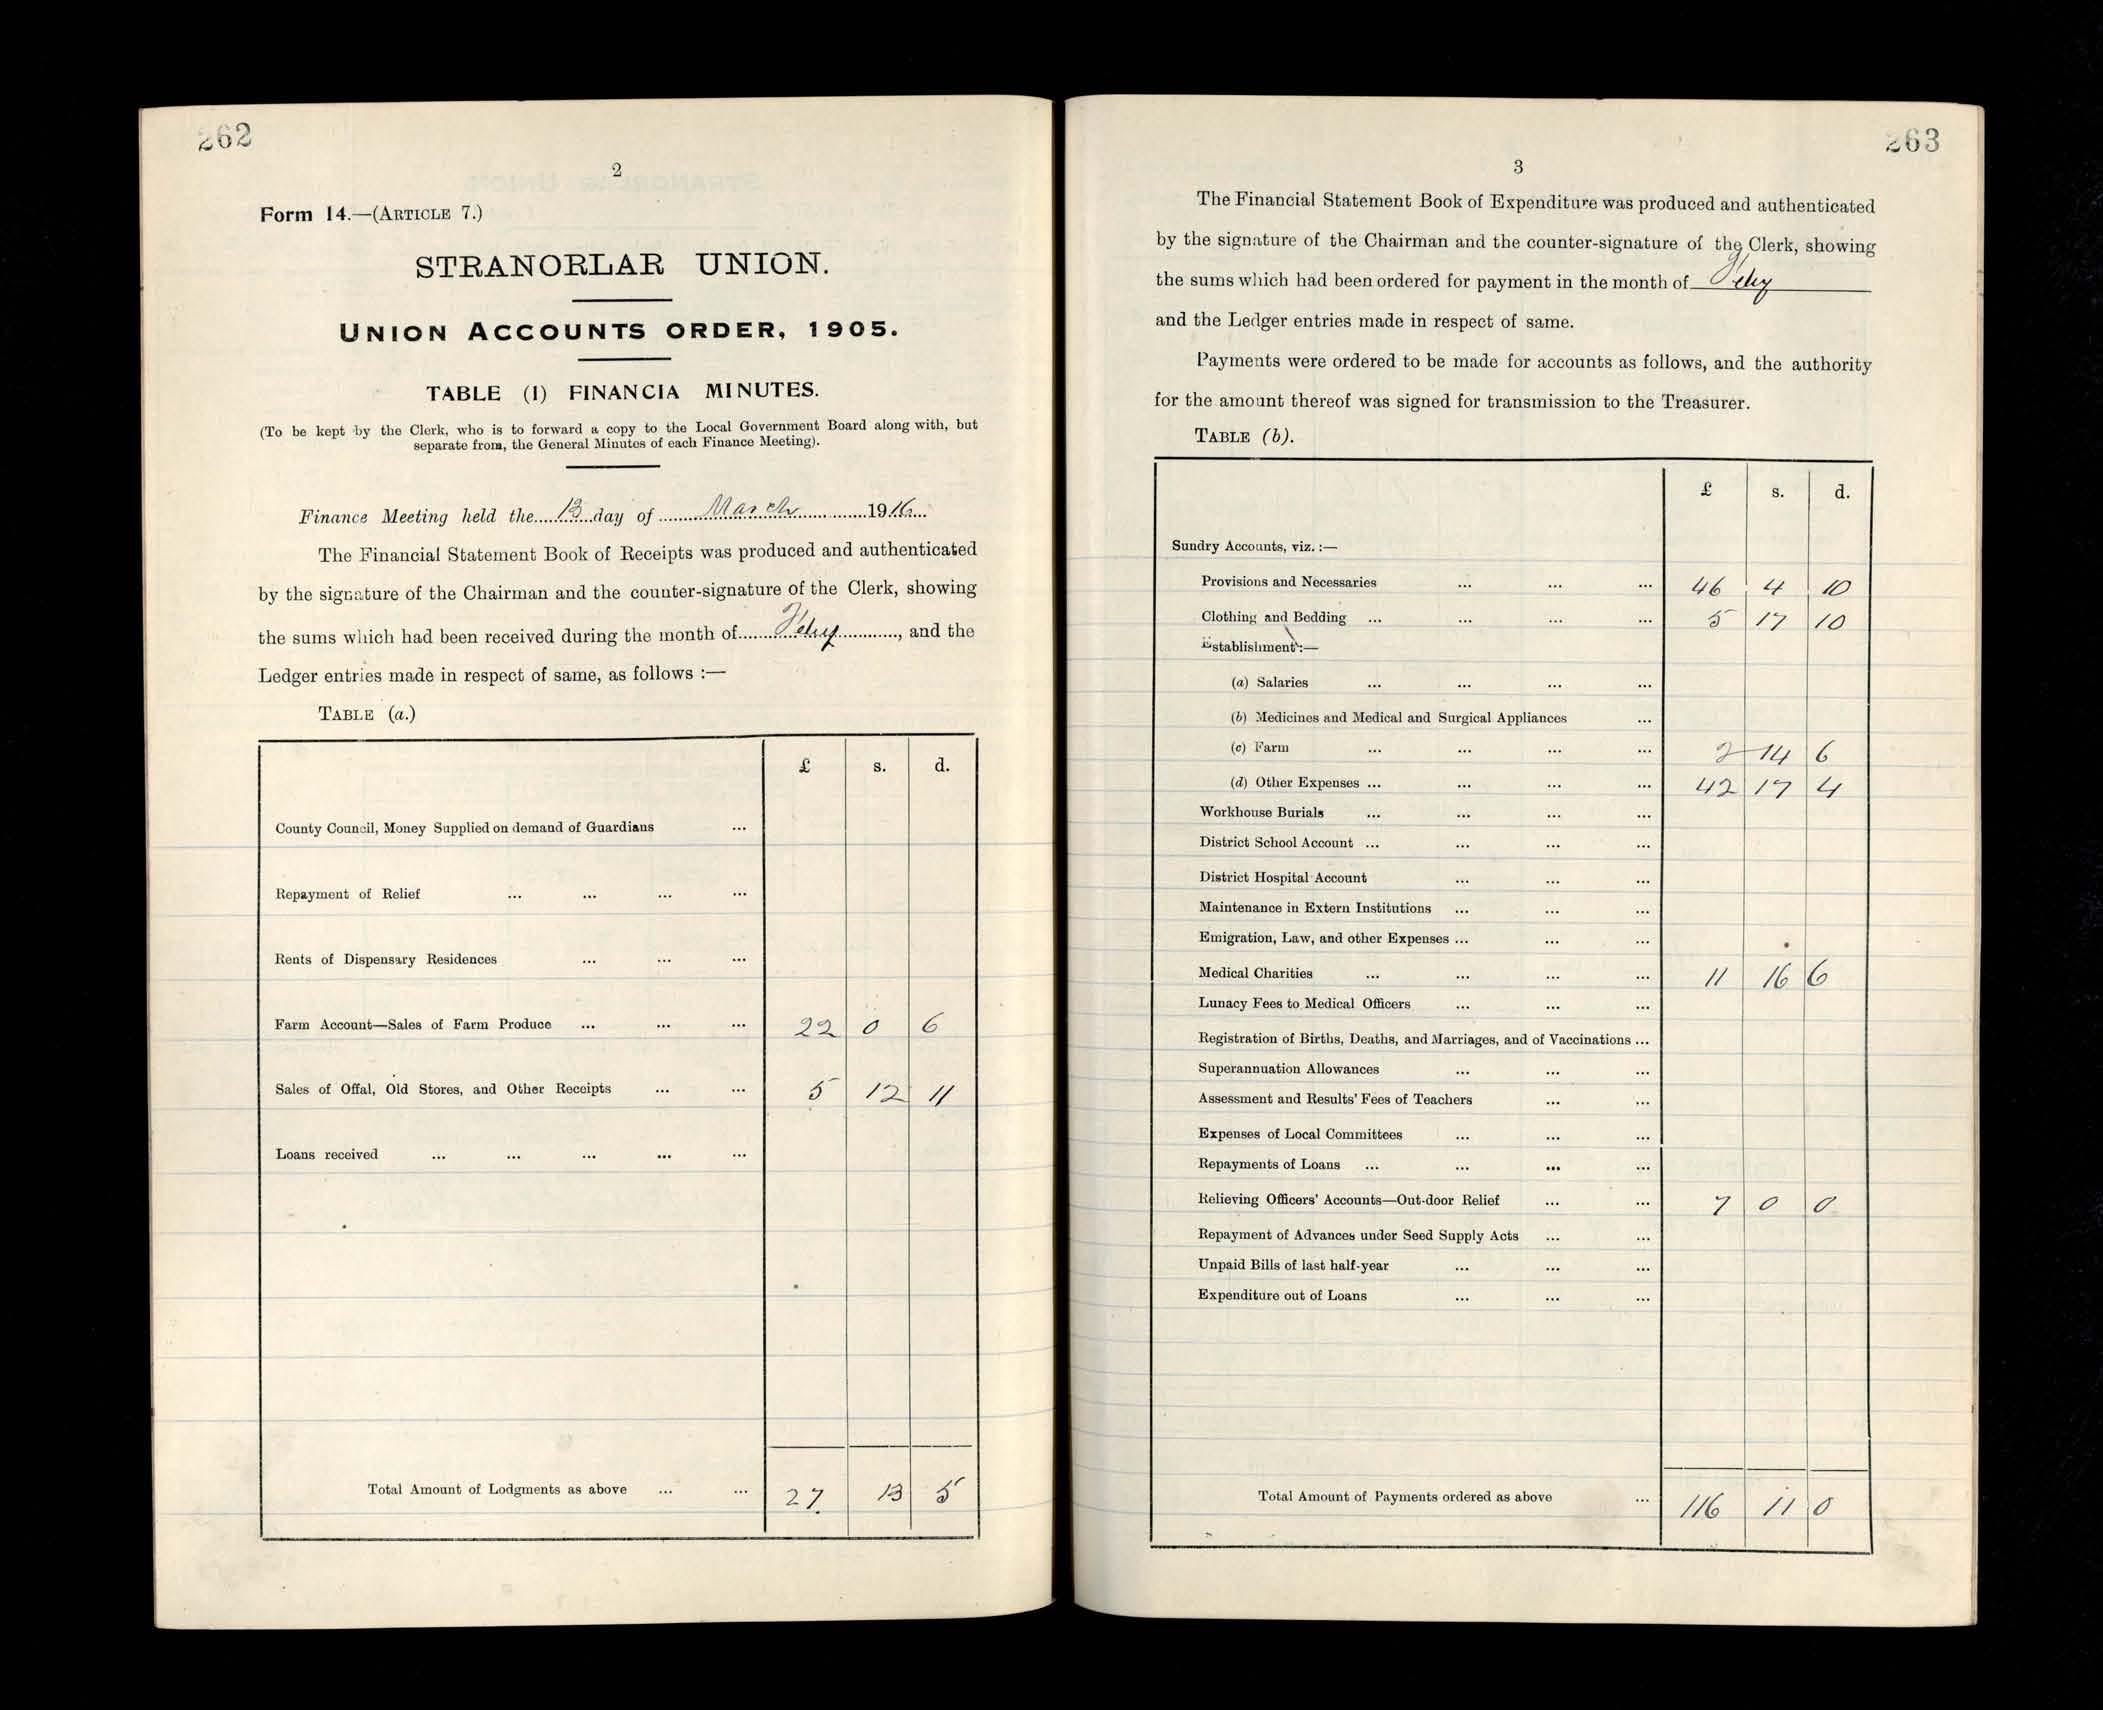 262
2
Form 14.—(ARTICLE 7.)
STRANORLAR UNION.
UNION ACCOUNTS ORDER, 1905.
TABLE (1) FINANCIA MINUTES.
(To be kept by the Clerk, who is to forward a copy to the Local Government Board along with, but
separate from, the General Minutes of each Finance Meeting).
Finance Meeting held the.....13...day of ........March............1916...
The Financial Statement Book of Receipts was produced and authenticated
by the signature of the Chairman and the counter-signature of the Clerk, showing
the sums which had been received during the month of.......Feby..........., and the
Ledger entries made in respect of same, as follows :—
TABLE (a.)
£ s. d.
County Council, Money Supplied on demand of Guardians ...
Repayment of Relief ... ... ... ...
Rents of Dispensary Residences ... ... ...
Farm Account—Sales of Farm Produce ... ... ... 22 0 6
Sales of Offal, Old Stores, and Other Receipts ... ... 5 12 11
Loans received ... ... ... ... ...
Total Amount of Lodgments as above ... ... 27 13 5
263
3
The Financial Statement Book of Expenditure was produced and authenticated
by the signature of the Chairman and the counter-signature of the Clerk, showing
the sums which had been ordered for payment in the month of Feby
and the Ledger entries made in respect of same.
Payments were ordered to be made for accounts as follows, and the authority
for the amount thereof was signed for transmission to the Treasurer.
TABLE (b).
£ s. d.
Sundry Accounts, viz. :—
Provisions and Necessaries ... ... ... 46 4 10
Clothing and Bedding ... ... ... ... 5 17 10
Establishment :—
(a) Salaries ... ... ... ...
(b) Medicines and Medical and Surgical Appliances ...
(c) Farm ... ... ... ... 2 14 6
(d) Other Expenses ... ... ... ... 42 17 4
Workhouse Burials ... ... ... ...
District School Account ... ... ... ...
District Hospital Account ... ... ...
Maintenance in Extern Institutions ... ... ...
Emigration, Law, and other Expenses ... ... ...
Medical Charities ... ... ... ... 11 16 6
Lunacy Fees to Medical Officers ... ... ...
Registration of Births, Deaths, and Marriages, and of Vaccinations ...
Superannuation Allowances ... ... ...
Assessment and Results' Fees of Teachers ... ...
Expenses of Local Committees ... ... ...
Repayments of Loans ... ... ... ...
Relieving Officers' Accounts—Out-door Relief ... ... 7 0 0
Repayment of Advances under Seed Supply Acts ... ...
Unpaid Bills of last half-year ... ... ...
Expenditure out of Loans ... ... ...
Total Amount of Payments ordered as above ... 116 11 0